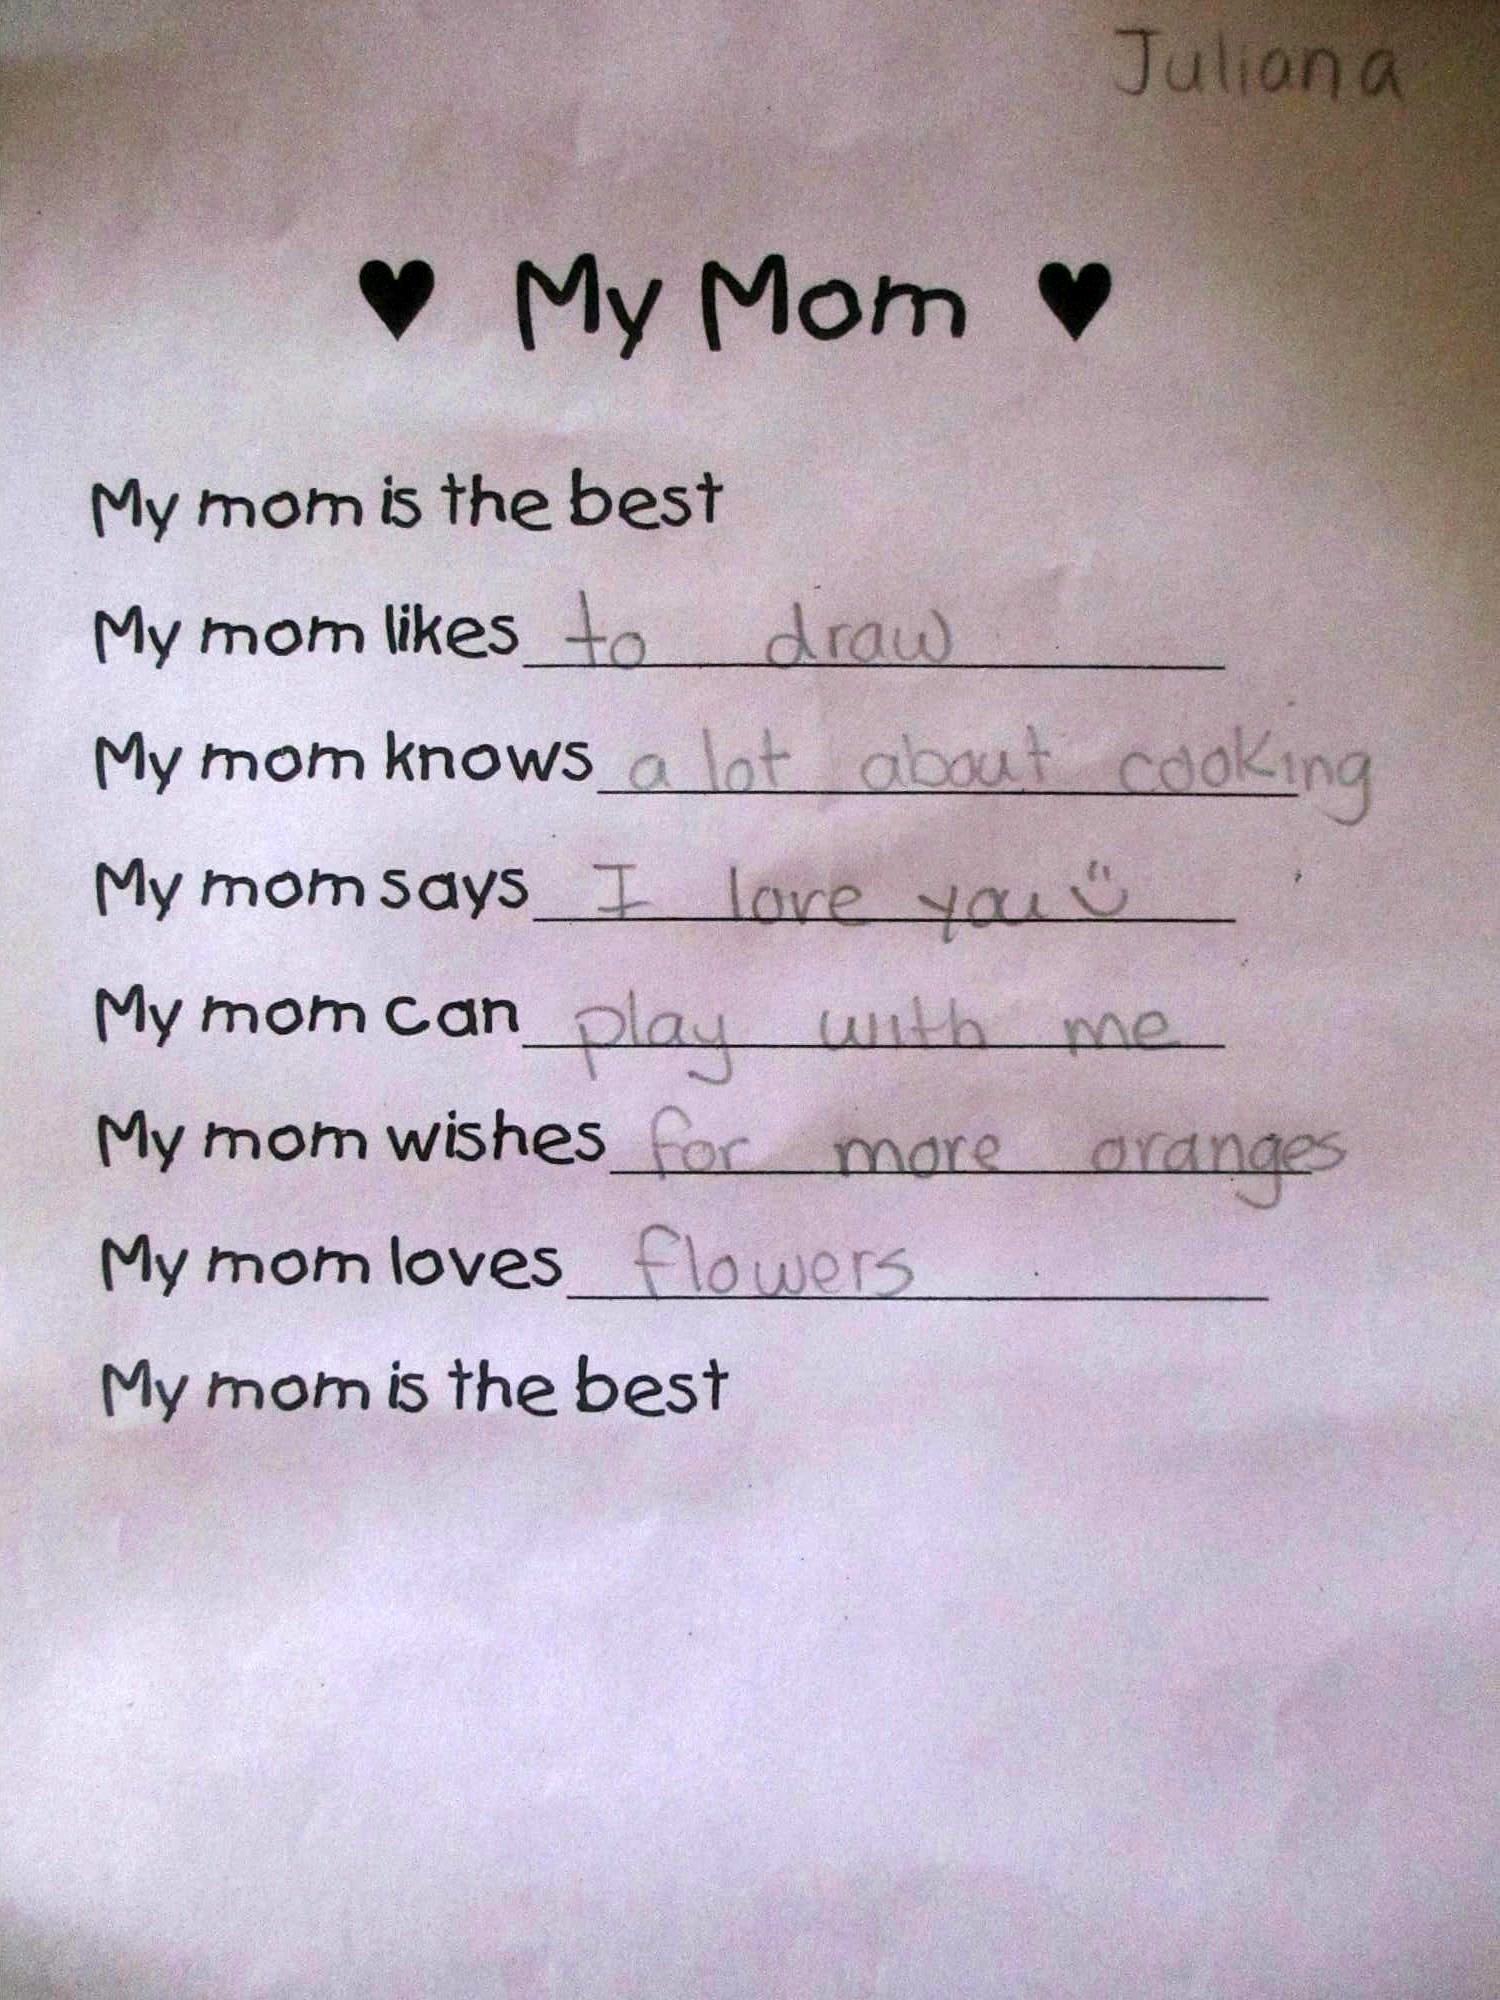 Juliana
♥ My Mom ♥
My mom is the best
My mom likes to draw
My mom knows a lot about cooking
My mom says I love you
My mom can play with me
My mom wishes for more oranges
My mom loves flowers
My mom is the best